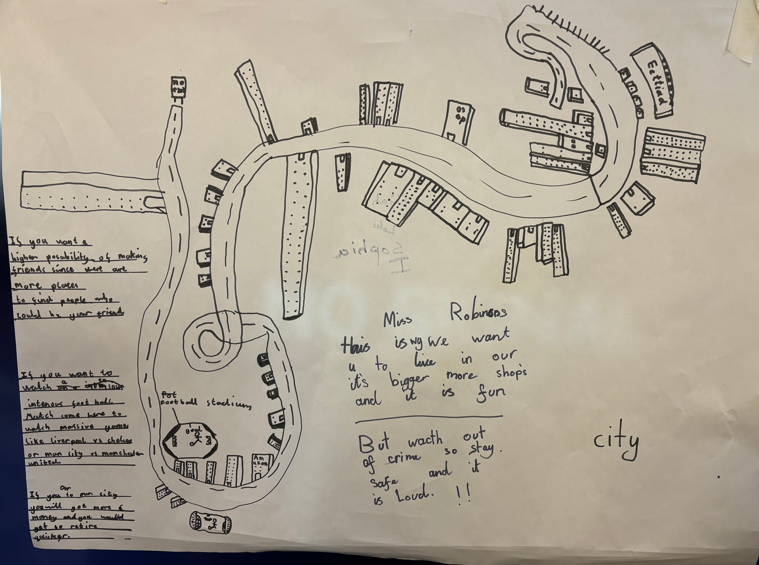 If you want a
higher posability of making
friends since were are
more places
to find people who
could be your friend
If you want to
watch a
intense foot ball
Match come here to
watch massive games
like liverpool vs chelse
or man city vs manchster
united
or
If you to our city
you will get more
money and you would
get to retire
quicker.
Pot
Football stadium
Miss Robinsons
this is wy we want
u to live in our
it's bigger more shops
and it is fun
But wacth out
of crime so stay
safe and it
is Loud. !!
city
Sophia
I